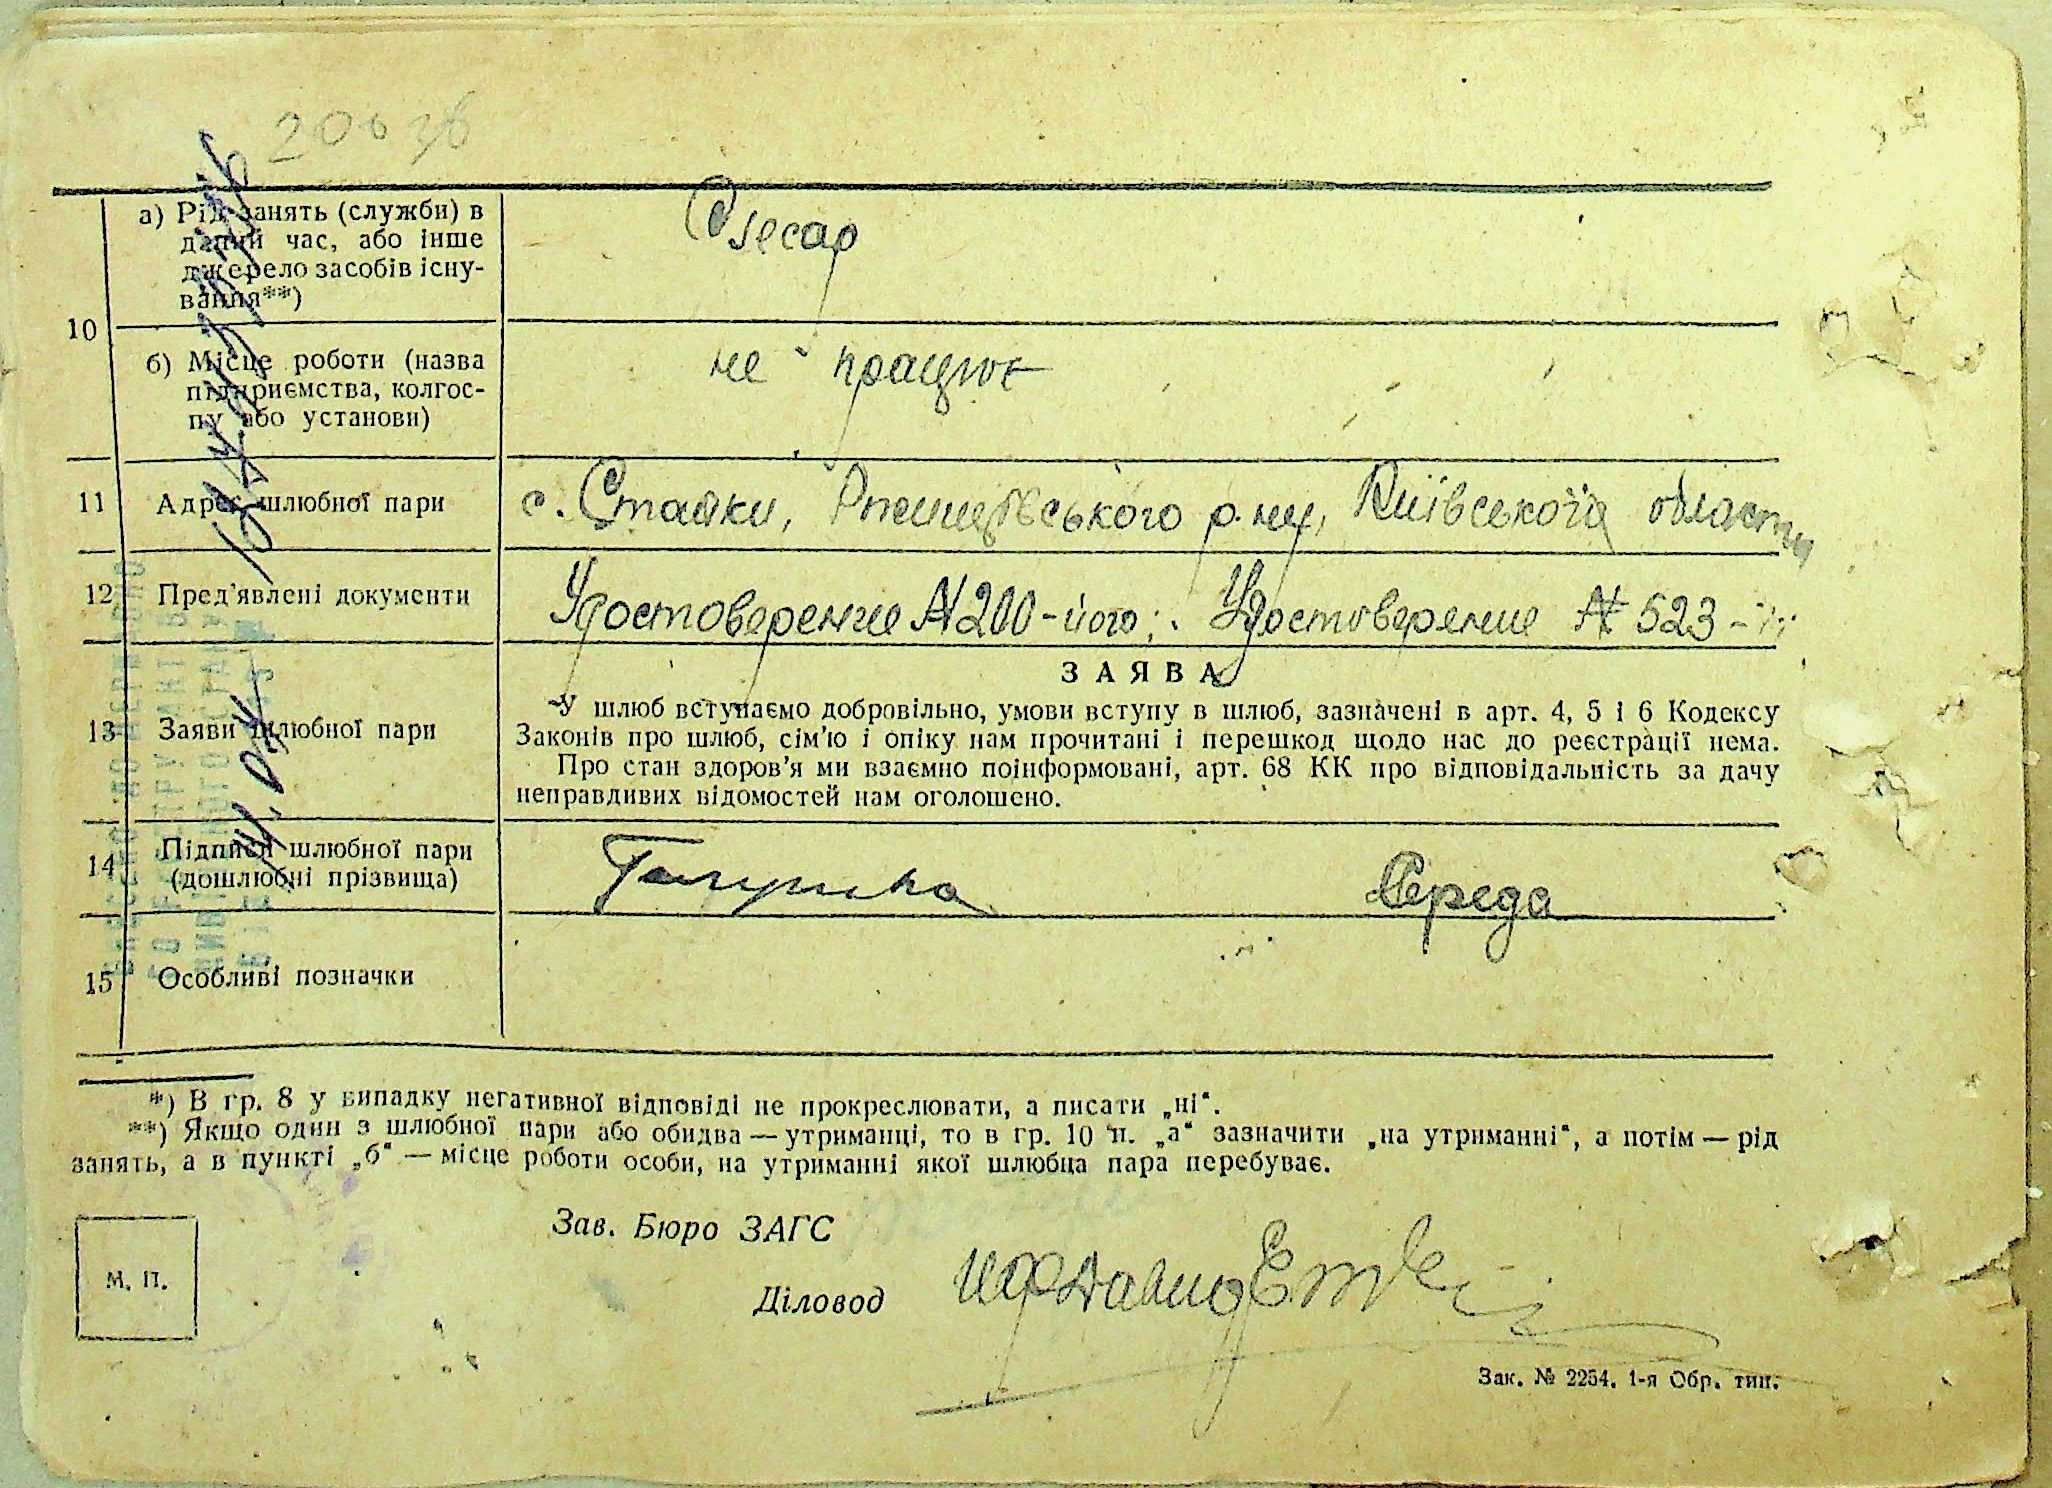 10
а) Рід занять (служби) в
даний час, або інше
джерело засобів існу-
вання**)
Слесар
б) Місце роботи (назва
підприємства, колгос-
пу або установи)
не працює
11 Адрес шлюбної пари
с. Стайки, Ржищівського р-ну, Київської области
12 Пред’явлені документи
Удостоверение №200-його; Удостоверение № 523-її
13 Заяви шлюбної пари
ЗАЯВА
У шлюб вступаємо добровільно, умови вступу в шлюб, зазначені в арт. 4, 5 і 6 Кодексу
Законів про шлюб, сім’ю і опіку нам прочитані і перешкод щодо нас до реєстрації нема.
Про стан здоров’я ми взаємно поінформовані, арт. 68 КК про відповідальність за дачу
неправдивих відомостей нам оголошено.
14 Підписи шлюбної пари
(дошлюбні прізвища)
Галушка Середа
15 Особливі позначки
*) В гр. 8 у випадку негативної відповіді не прокреслювати, а писати „ні“.
**) Якщо один з шлюбної пари або обидва — утриманці, то в гр. 10 п. „а“ зазначити „на утриманні“, а потім — рід
занять, а в пункті „б“ — місце роботи особи, на утриманні якої шлюбна пара перебуває.
Зав. Бюро ЗАГС
М. П.
Діловод
Зак. № 2254. 1-я Обр. тип.